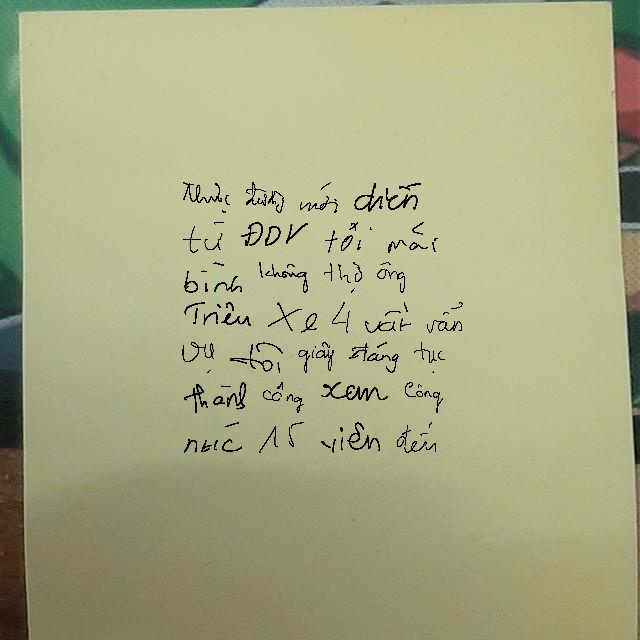 thuộc đường mới diễn
từ ĐDV tối mái
bình không thờ ông
Triệu Xe 4 vất vẩn
vụ tôi giây tháng tục
thành công xem Công
nức 15 viên đến